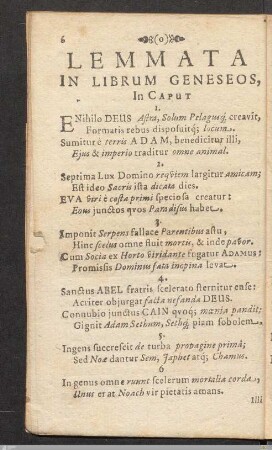 6 (o)
LEMMATA
IN LIBRUM GENESEOS,
In CAPUT
1.
E Nihilo DEUS Astra, Solum Pelagusq; creavit,
Formatis rebus disposuitq; locum.
Sumitur è terris ADAM, benedicitur illi,
Ejus & imperio traditur omne animal.
2.
Septima Lux Domino reqvïem largitur amicam;
Est ideo Sacris ista dicata dies.
EVA viri è costa primi speciosa creatur:
Eous junctos qvos Paradisus habet.
3.
Imponit Serpens fallace Parentibus astu,
Hinc scelus omne fluit mortis, & inde pavor.
Cum Socia ex Horto viridante fugatur ADAMUS:
Promissis Dominus fata inopina levat.
4.
Sanctus ABEL fratris scelerato sternitur ense:
Acriter objurgat facta nefanda DEUS.
Connubio junctus CAIN qvoq; mœnia pandit;
Gignit Adam Sethum, Sethq; piam sobolem.
5.
Ingens succrescit de turba propagine primâ;
Sed Noæ dantur Sem, Japhet atq; Chamus.
6
In genus omne ruunt scelerum mortalia corda,
Unus er at Noach vir pietatis amans.
Illi